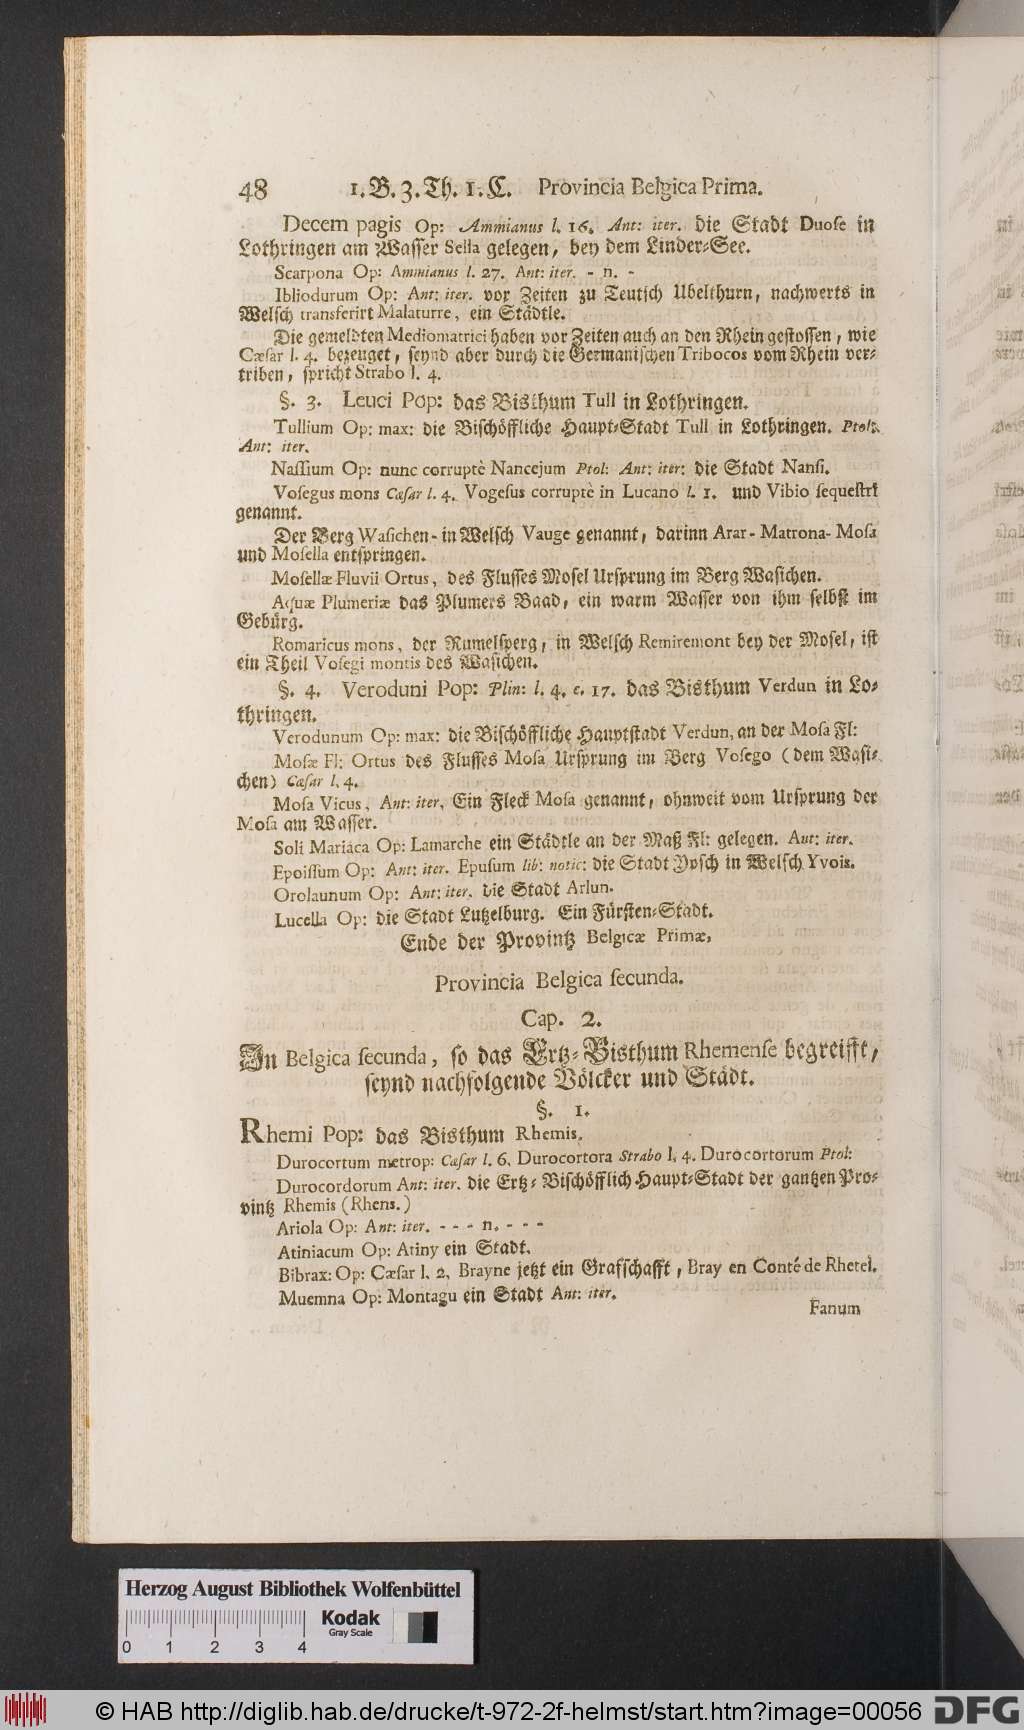 48 1. B. 3. Th. 1. C. Provincia Belgica Prima.
Decem pagis Op: Ammianus l. 16. Ant: iter. die Stadt Duose in
Lothringen am Wasser Sella gelegen, bey dem Linder-See.
Scarpona Op: Ammianus l. 27. Ant: iter. - n. -
Ibliodurum Op: Ant: iter. vor Zeiten zu Teutsch Ubelthurn, nachwerts in
Welsch transferirt Malaturre, ein Städtle.
Die gemeldten Mediomatrici haben vor Zeiten auch an den Rhein gestossen, wie
Cæsar l. 4. bezeuget, seynd aber durch die Germanischen Tribocos vom Rhein ver-
triben, spricht Strabo l. 4.
§. 3. Leuci Pop: das Bisthum Tull in Lothringen.
Tullium Op: max: die Bischöffliche Haupt-Stadt Tull in Lothringen. Ptol:
Ant: iter.
Nassium Op: nunc corruptè Nancejum Ptol: Ant: iter: die Stadt Nansi.
Vosegus mons Cæsar l. 4. Vogesus corruptè in Lucano l. 1. und Vibio sequestri
genannt.
Der Berg Wasichen- in Welsch Vauge genannt, darinn Arar- Matrona- Mosa
und Mosella entspringen.
Mosellæ Fluvii Ortus, des Flusses Mosel Ursprung im Berg Wasichen.
Aquæ Plumeriæ das Plumers Baad, ein warm Wasser von ihm selbst im
Gebürg.
Romaricus mons, der Rumelsperg, in Welsch Remiremont bey der Mosel, ist
ein Theil Vosegi montis des Wasichen.
§. 4. Veroduni Pop: Plin: l. 4. c. 17. das Bisthum Verdun in Lo-
thringen.
Verodunum Op: max: die Bischöffliche Hauptstadt Verdun, an der Mosa Fl:
Mosæ Fl: Ortus des Flusses Mosa Ursprung im Berg Vosego (dem Wasi-
chen) Cæsar l. 4.
Mosa Vicus, Ant: iter. Ein Fleck Mosa genannt, ohnweit vom Ursprung der
Mosa am Wasser.
Soli Mariaca Op: Lamarche ein Städtle an der Maß Fl: gelegen. Ant: iter.
Epoissum Op: Ant: iter. Epusum lib: notic: die Stadt Ypsch in Welsch Yvois.
Orolaunum Op: Ant: iter. die Stadt Arlun.
Lucella Op: die Stadt Lutzelburg. Ein Fürsten-Stadt.
Ende der Provintz Belgicæ Primæ,
Provincia Belgica secunda.
Cap. 2.
In Belgica secunda, so das Ertz-Bisthum Rhemense begreifft,
seynd nachfolgende Völcker und Städt.
§. 1.
Rhemi Pop: das Bisthum Rhemis.
Durocortum metrop: Cæsar l. 6. Durocortora Strabo l. 4. Durocortorum Ptol:
Durocordorum Ant: iter. die Ertz-Bischöfflich Haupt-Stadt der gantzen Pro-
vintz Rhemis (Rhens.)
Ariola Op: Ant: iter. - - - n. - - -
Atiniacum Op: Atiny ein Stadt.
Bibrax: Op: Cæsar l. 2. Brayne jetzt ein Grafschafft, Bray en Conté de Rhetel.
Muemna Op: Montagu ein Stadt Ant: iter.
Fanum
Herzog August Bibliothek Wolfenbüttel
Kodak
Gray Scale
0 1 2 3 4
© HAB http://diglib.hab.de/drucke/t-972-2f-helmst/start.htm?image=00056
DFG